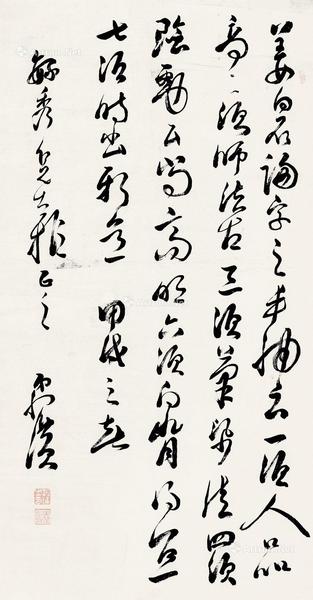 姜白石論字之云一須人品
高二須師法古三須筆佳四須
險勁五高明六須向背得宜
七須時出新意 甲戌之
毓秀兄大雅正之